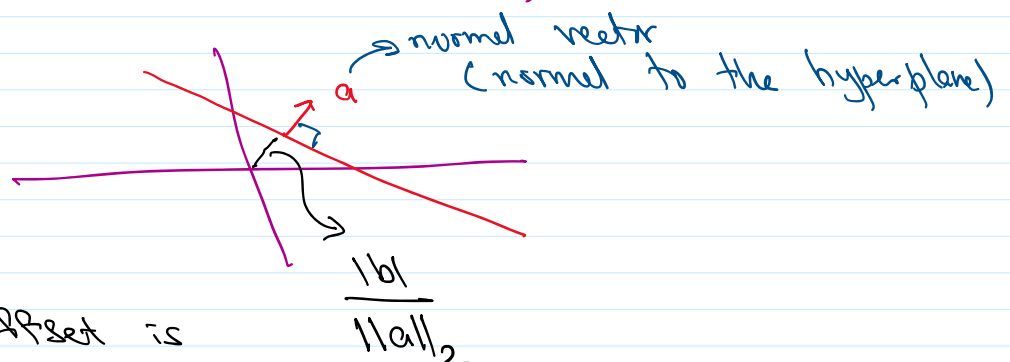 normal vector
a (normal to the hyperplane)
|b|
offset is ||a||₂